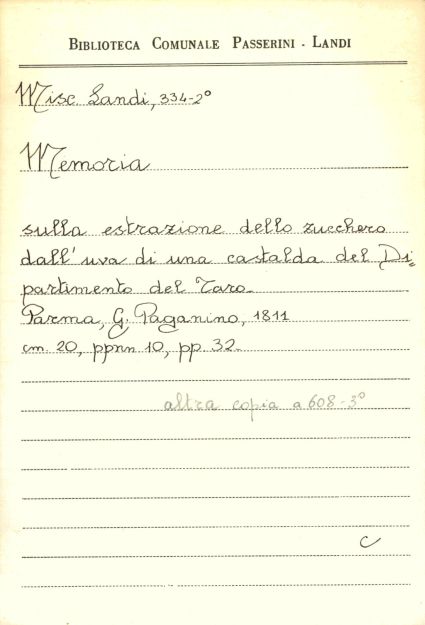 BIBLIOTECA COMUNALE PASSERINI - LANDI
Misc. Landi, 334-2°
Memoria
sulla estrazione dello zucchero
dall'uva di una castalda del Di=
partimento del Taro.
Parma, G. Paganino, 1811
cm. 20, ppnn 10, pp. 32.
altra copia a 608-3°
C